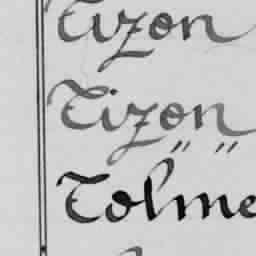 Tizon
Tizon
" "
Tolme